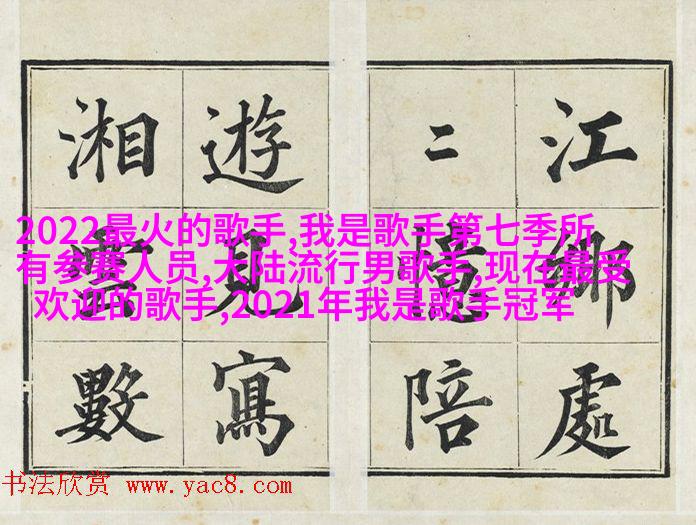 江鄉處
二憶陪
遊見寫
湘雲數
2022最火的歌手,我是歌手第七季所
有参赛人员,大陆流行男歌手,现在最受
欢迎的歌手,2021年我是歌手冠军
书法欣赏 www.yac8.com